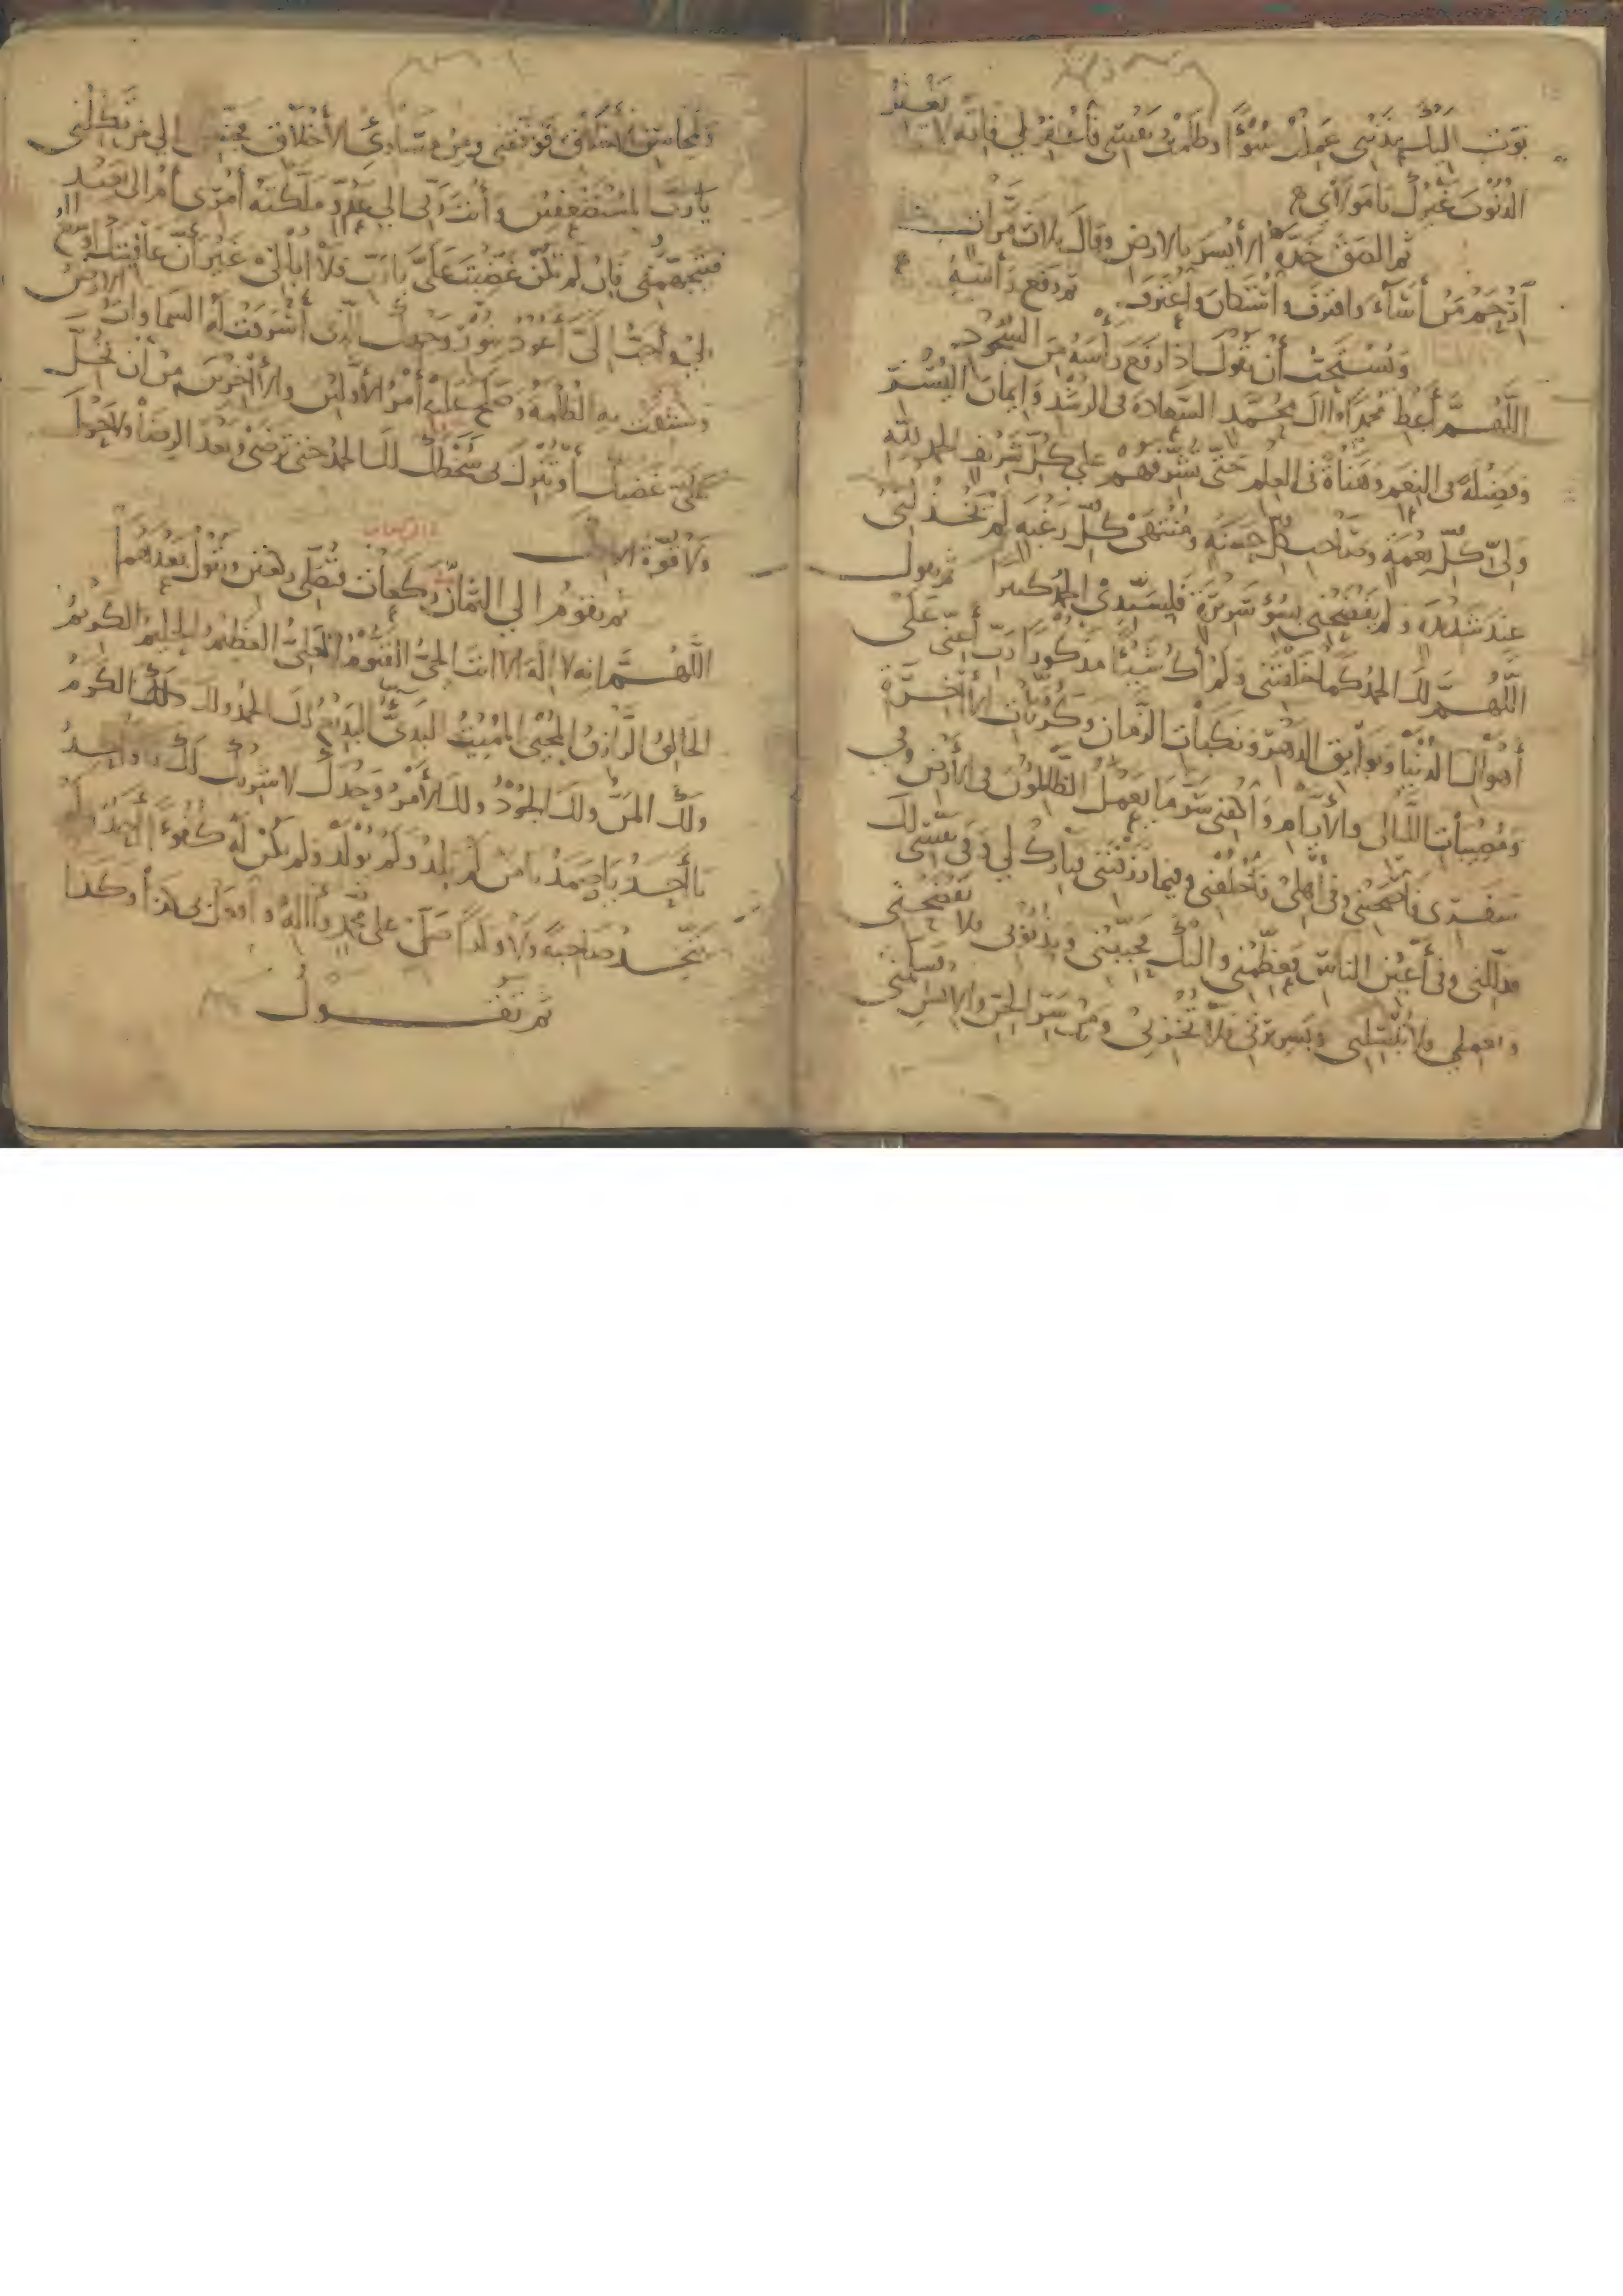 بؤت اليك بذنبي عملت سوءا وظلمت نفسي فاغفر لي فانه لا يغفر
الذنوب غيرك يا مولاي
ثم الصق خده الأيسر بالارض وقال ثلاث مرات
ارحم من أساء واقترف واستكان واعترف ثم رفع رأسه
ويستحب أن يقول اذا رفع رأسه من السجود
اللهم أعط محمدا وال محمد السعادة في الرشد وايمان اليسر
وفضيلة في النعم وهناة في العلم حتى تشرفهم على كل شريف الحمد لله
ولي كل نعمة وصاحب كل حسنة ومنتهى كل رغبة لم يخذلني
عند شديدة ولم يفضحني بسوء سريرة فلسيدي الحمد كثيرا ثم يقول
اللهم لك الحمد كما خلقتني ولم أك شيئا مذكورا رب أعني على
أهوال الدنيا وبوايق الدهر ونكبات الزمان وكربات الأخرة
ومصيبات الليالي والأيام واكفني شر ما يعمل الظالمون في الأرض وفي
سفري فاصحبني وفي أهلي فاخلفني وفيما رزقتني فبارك لي وفي نفسي لك
فذللني وفي أعين الناس فعظمني واليك فحببني وبذنوبي فلا تفضحني
وبعملي فلا تبسلني وبسريرتي فلا تخزني ومن شر الجن والانس فسلمني
ولمحاسن الأخلاق فوفقني ومن مساوئ الأخلاق فجنبني الى من تكلني
يا رب المستضعفين وأنت ربي الى عدو ملكته أمري أم الى بعيد
فيتجهمني فان لم تكن غضبت علي يا رب فلا أبالي غير أن عافيتك أوسع
لي وأحب الي أعوذ بنور وجهك الذي أشرقت له السماوات والارض
وكشفت به الظلمة وصلح عليه أمر الأولين والأخرين من أن تحل
علي غضبك أو تنزل بي سخطك لك الحمد حتى ترضى وبعد الرضا ولا حول
ولا قوة الا بك
ثم يقوم الى الثمان ركعات فتصلي ركعتين وتقول بعدهما
اللهم انه لا اله الا انت الحي القيوم العلي العظيم الحليم الكريم
الخالق الرازق المحيي المميت البدئ البديع لك الحمد ولك الكرم
ولك المن ولك الجود ولك الأمر وحدك لا شريك لك يا واحد
يا أحد يا صمد يا من لم يلد ولم يولد ولم يكن له كفوا أحد
يتخذ صاحبة ولا ولدا صل على محمد وآله وافعل بي كذا وكذا
ثم تقول